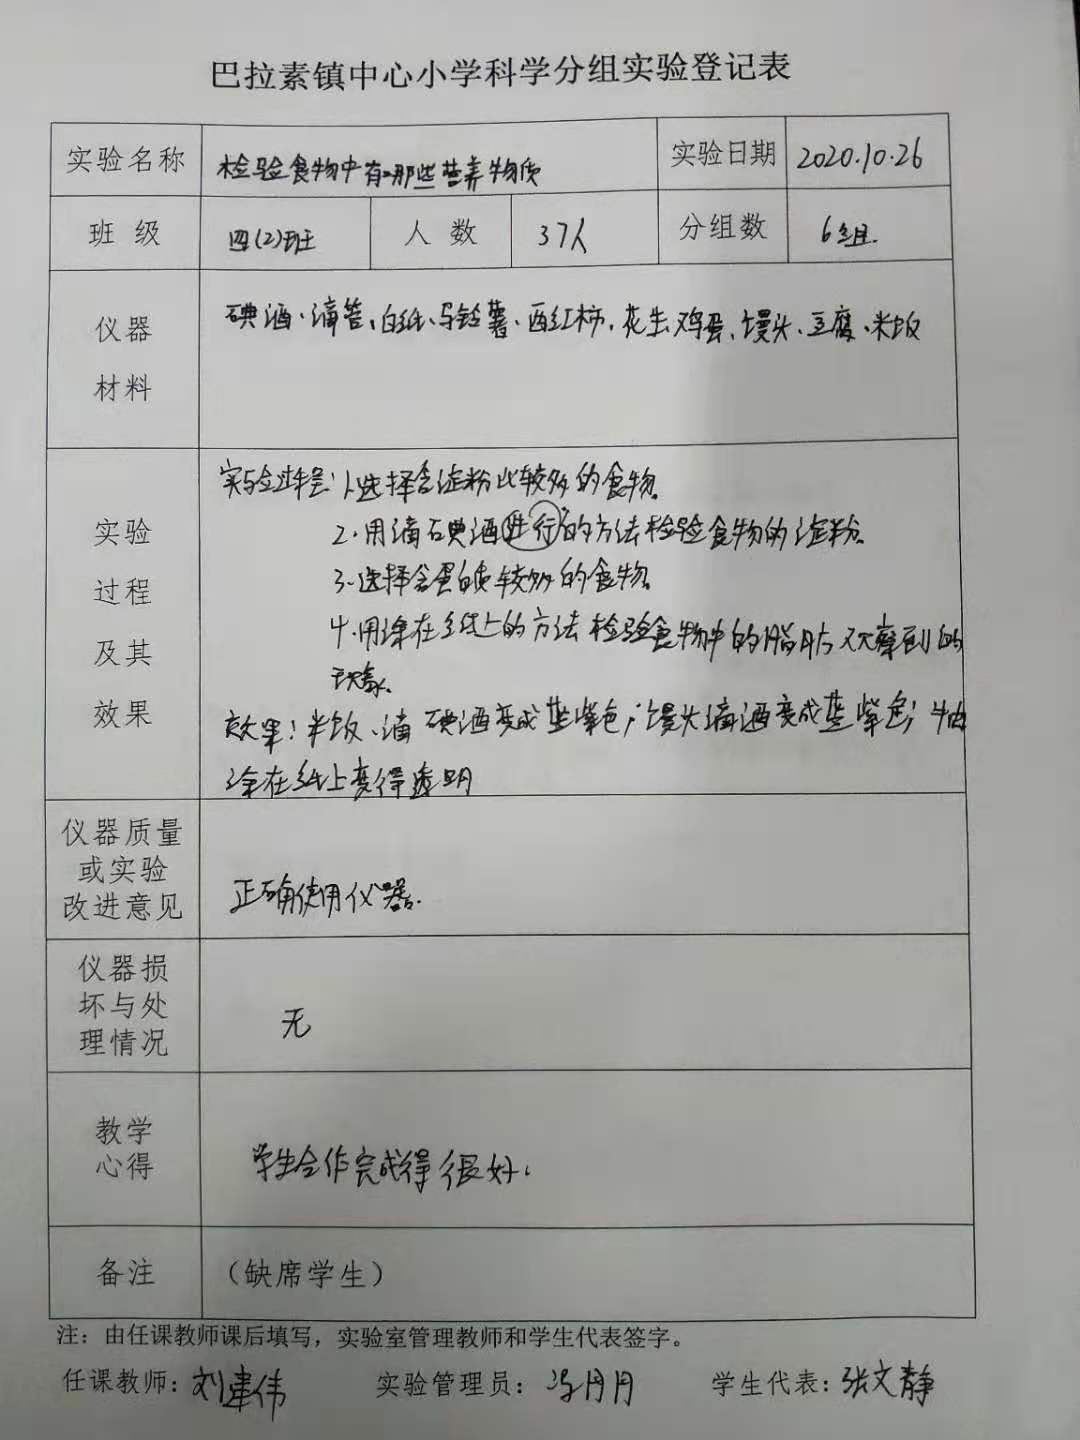 巴拉素镇中心小学科学分组实验登记表
实验名称 检验食物中有哪些营养物质 实验日期 2020.10.26
班 级 四(2)班 人 数 37人 分组数 6组.
仪器
材料
碘酒、滴管、白纸、马铃薯、西红柿、花生、鸡蛋、馒头、豆腐、米饭
实验
过程
及其
效果
实验过程:1.选择含淀粉比较多的食物。
2.用滴碘酒进行的方法检验食物的淀粉。
3.选择含蛋白质较多的食物。
4.用涂在纸上的方法检验食物中的脂肪 观察到的
现象。
效果:米饭、滴碘酒变成蓝紫色;馒头滴酒变成蓝紫色;牛肉
涂在纸上变得透明
仪器质量
或实验
改进意见
正确使用仪器.
仪器损
坏与处
理情况
无
教学
心得
学生合作完成得很好.
备注 (缺席学生)
注:由任课教师课后填写,实验室管理教师和学生代表签字。
任课教师:刘建伟 实验管理员:冯月月 学生代表:张文静